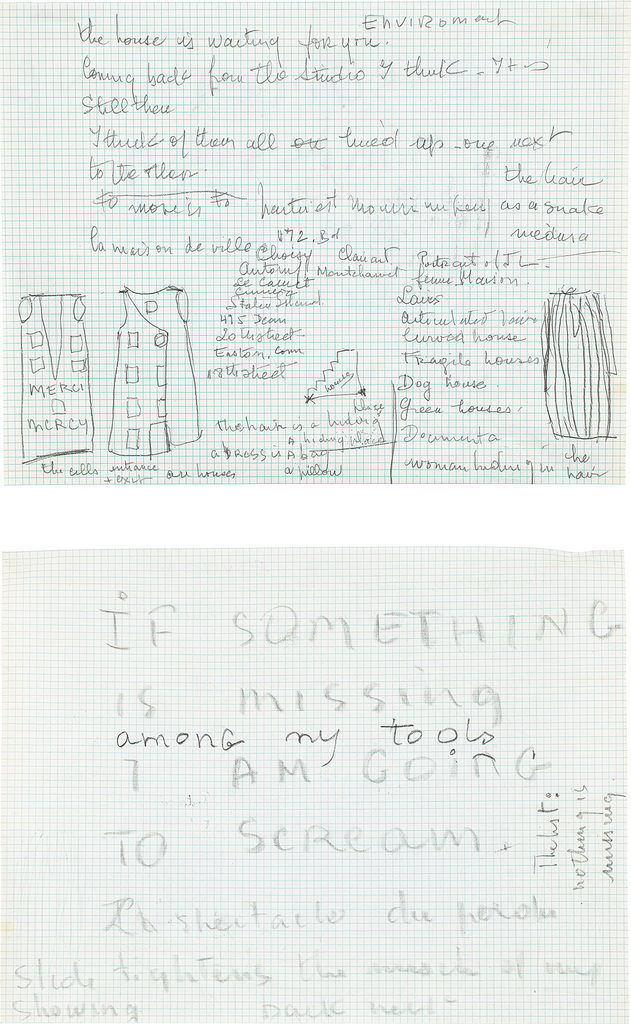 Enviroment
the house is waiting for you.
Coming back from the studio I think - It is
Still there
I think of them all lined up - one next
to the other.
the hair
as a snake
medusa
la maison de ville
172. Bd
Choisy
Clamart
Antony
Montchauvet
Le Cannet
Staten Island
475 Dean
20th street
Easton, Conn
18th street
Portrait of JL
femme Maison
Lairs
articulated lairs
Curved house
Fragile houses
Dog house
Green houses.
Documenta
woman hiding in the
hair
houses
MERCI
MERCY
a hiding place
a DRESS is A bag
a pillow
the cells are houses
entrance
+ exit
IF SOMETHING
is missing
among my tools
I AM GOING
TO SCREAM.
The list:
nothing is
missing
Slide tightens the of my
Showing back